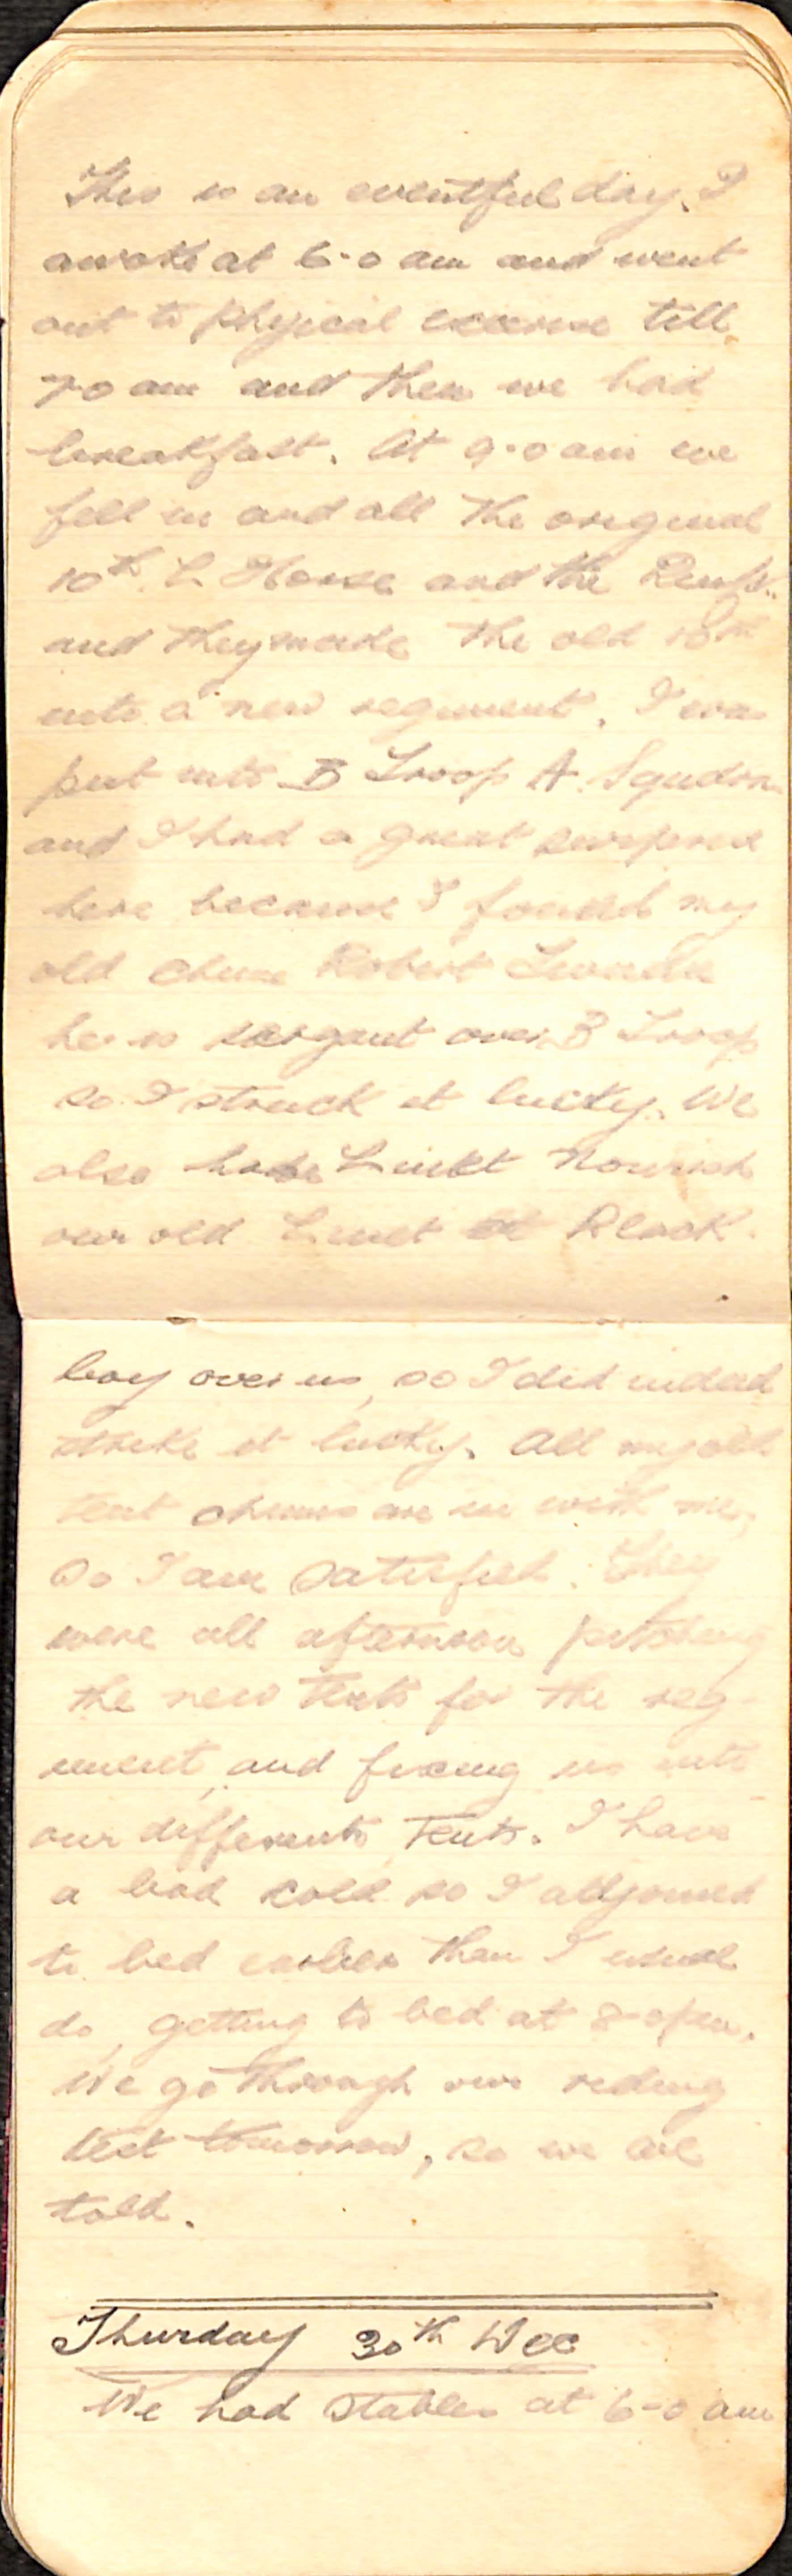 This is an eventful day. I
awoke at 6-0 am and went
out to Physical exercise till
7-0 am and then we had
breakfast. At 9-0 am we
fell in and all the original
10th L. Horse and the Reinfs.
and they made the old 10th
into a new regiment. I was
put into B Troop A Squdron
and I had a great surprise
here because I found my
old chum Robert
he is sargant over B Troop
so I struck it lucky. We
also have Liut Nourish
our old Liuet at Black
boy over us, so I did indeed
strike it lucky. All my old
tent chums are in with me,
so I am satisfied. They
were all afternoon pitching
the new Tents for the reg-
iment, and fixing us into
our differents Tents. I have
a bad cold so I adjorned
to bed earlier than I usual
do, getting to bed at 8-0 pm.
We go through our riding
test tomorrow, so we are
told.
Thurday 30th Dec
We had Stables at 6-0 am